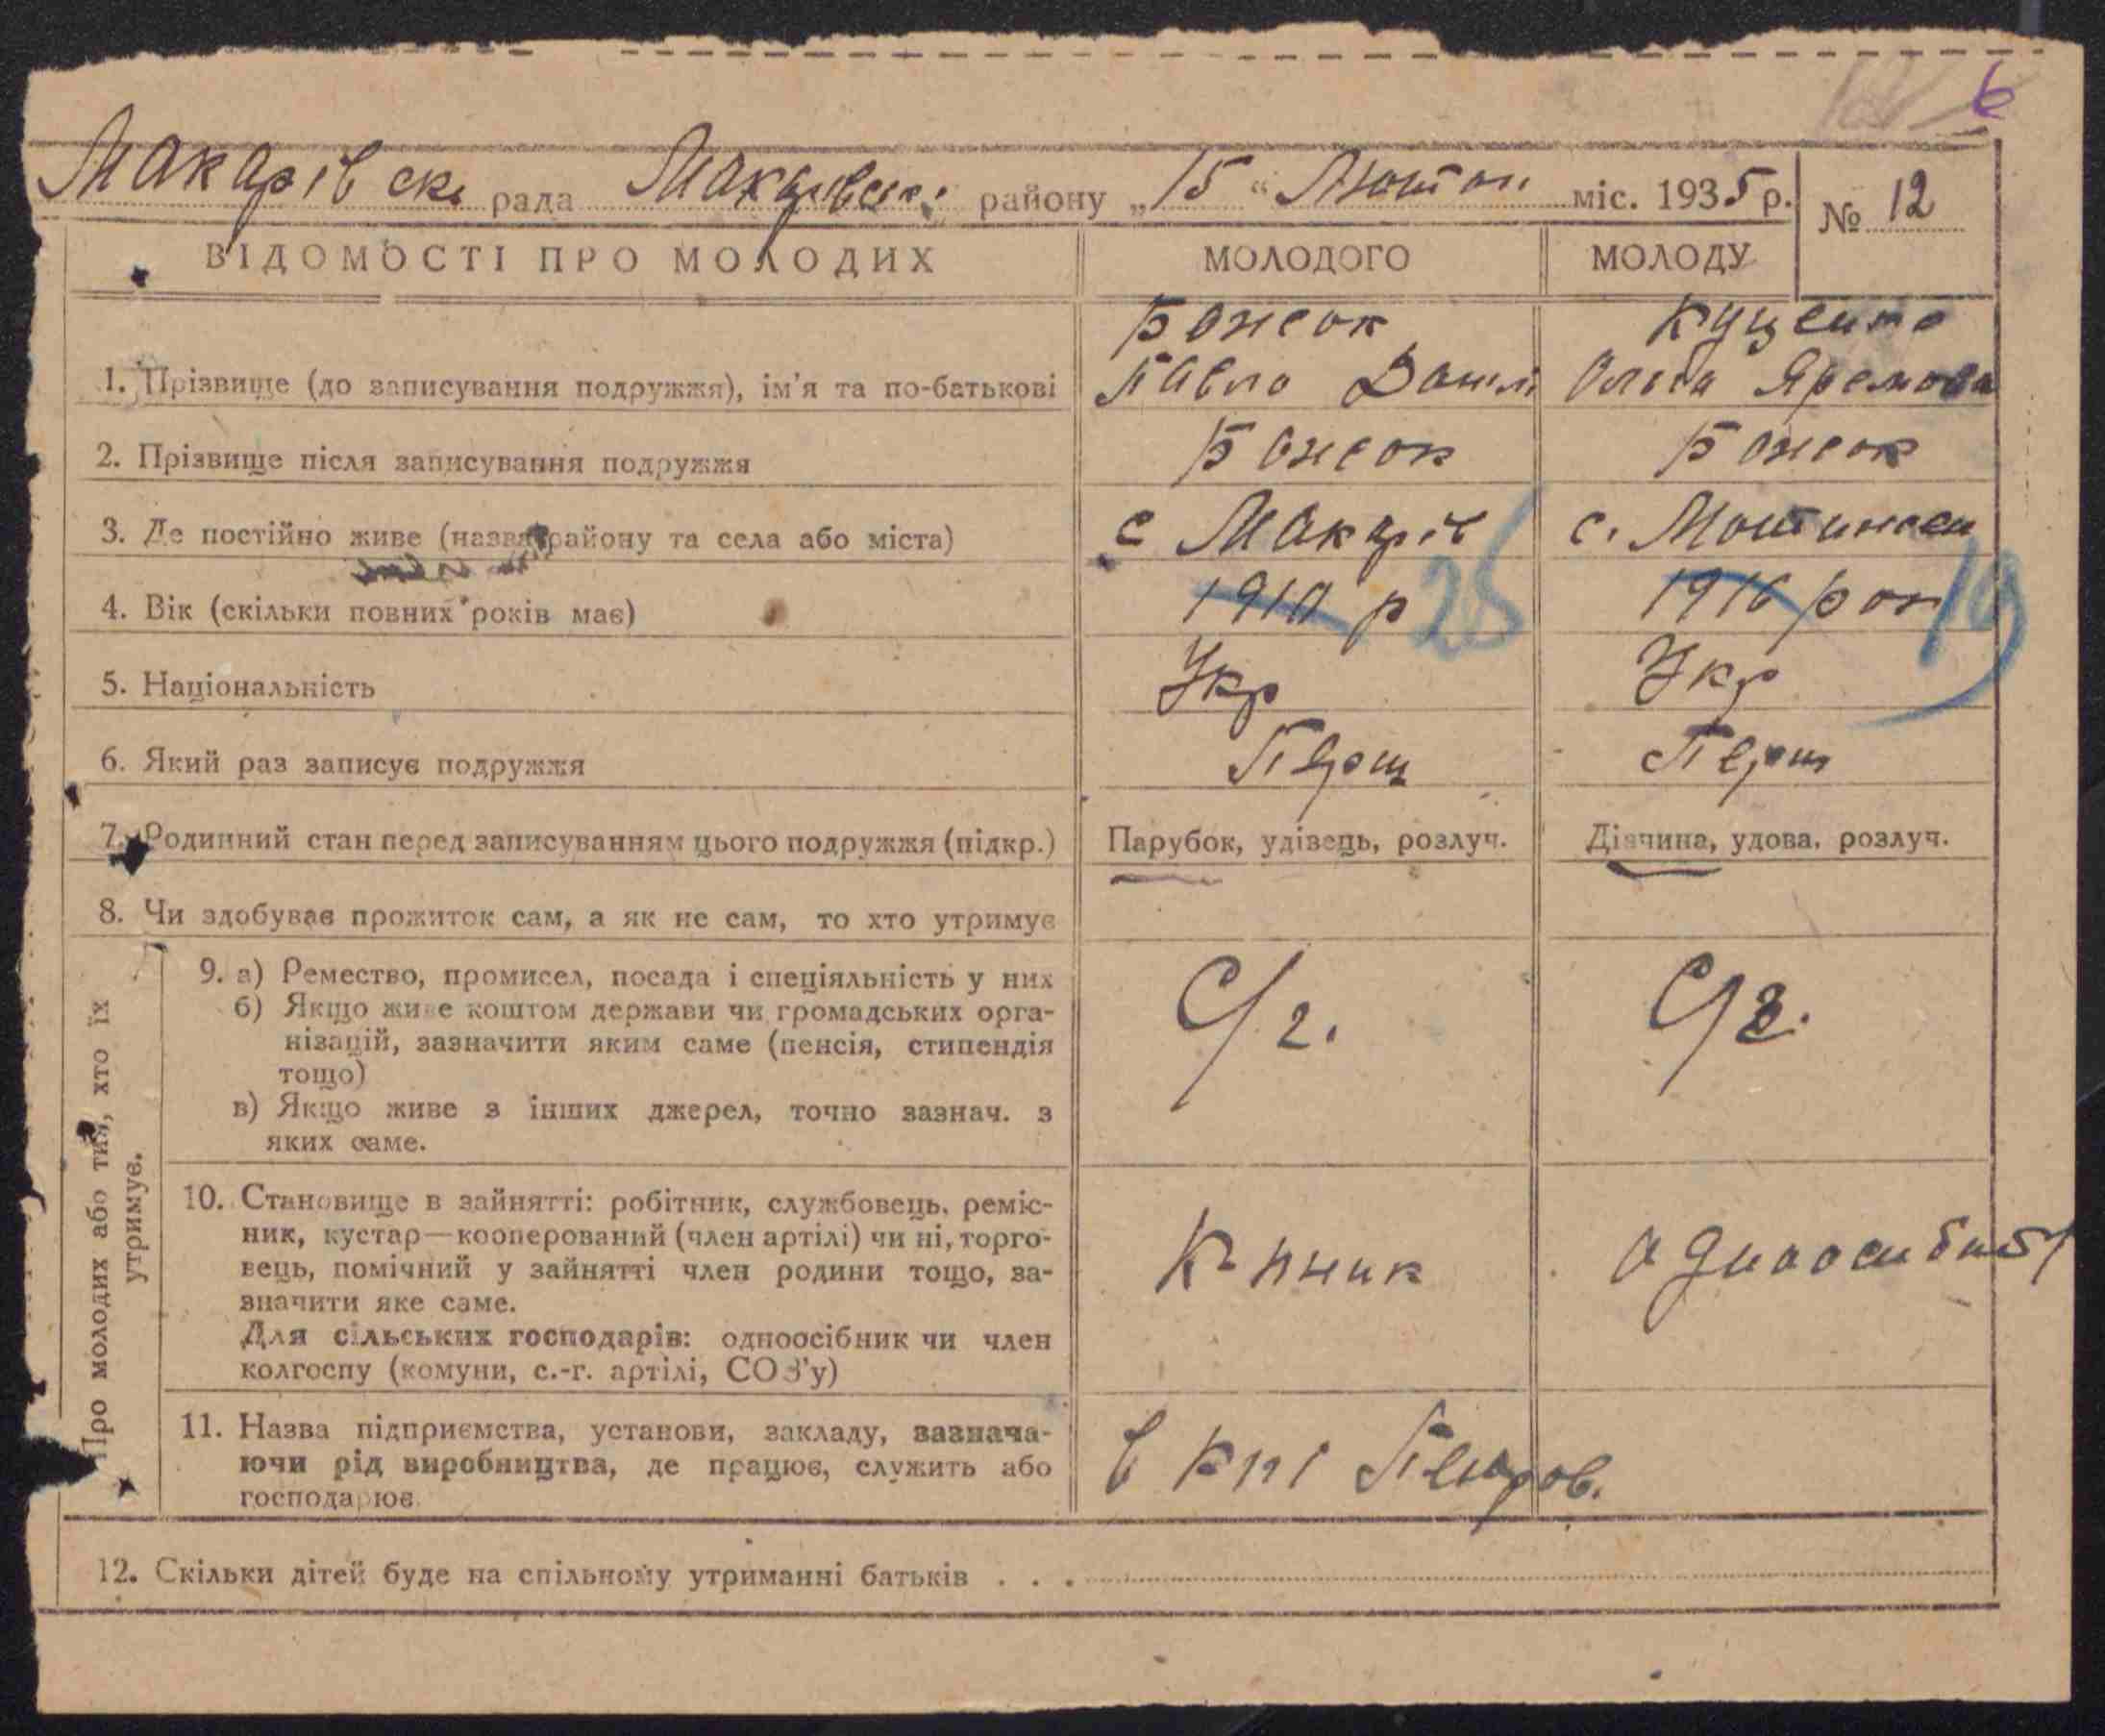 6
Макарівськ рада Макарівськ району „15“ Лютого міс. 1935 р. № 12
ВІДОМОСТІ ПРО МОЛОДИХ МОЛОДОГО МОЛОДУ
Божок Куценко
1. Прізвище (до записування подружжя), ім'я та по-батькові Павло Данил Ольга Яремова
2. Прізвище після записування подружжя Божок Божок
3. Де постійно живе (назва району та села або міста) с Макарів с.
4. Вік (скільки повних років має) 1910 р 25 1916 рок 19
5. Національність Укр Укр
6. Який раз записує подружжя Перш Перш
7. Родинний стан перед записуванням цього подружжя (підкр.) Парубок, удівець, розлуч. Дівчина, удова, розлуч.
8. Чи здобуває прожиток сам, а як не сам, то хто утримує
Про молодих або тих, хто їх
утримує.
9. а) Ремество, промисел, посада і спеціяльність у них С/г. С/г.
б) Якщо живе коштом держави чи громадських орга-
нізацій, зазначити яким саме (пенсія, стипендія
тощо)
в) Якщо живе з інших джерел, точно зазнач. з
яких саме.
10. Становище в зайнятті: робітник, службовець, реміс-
ник, кустар—кооперований (член артілі) чи ні, торго-
вець, помічний у зайнятті член родини тощо, за-
значити яке саме.
К-пник
Для сільських господарів: одноосібник чи член
колгоспу (комуни, с.-г. артілі, СОЗ'у)
11. Назва підприємства, установи, закладу, зазнача-
ючи рід виробництва, де працює, служить або
господарює
в кпі Петров.
12. Скільки дітей буде на спільному утриманні батьків . . .